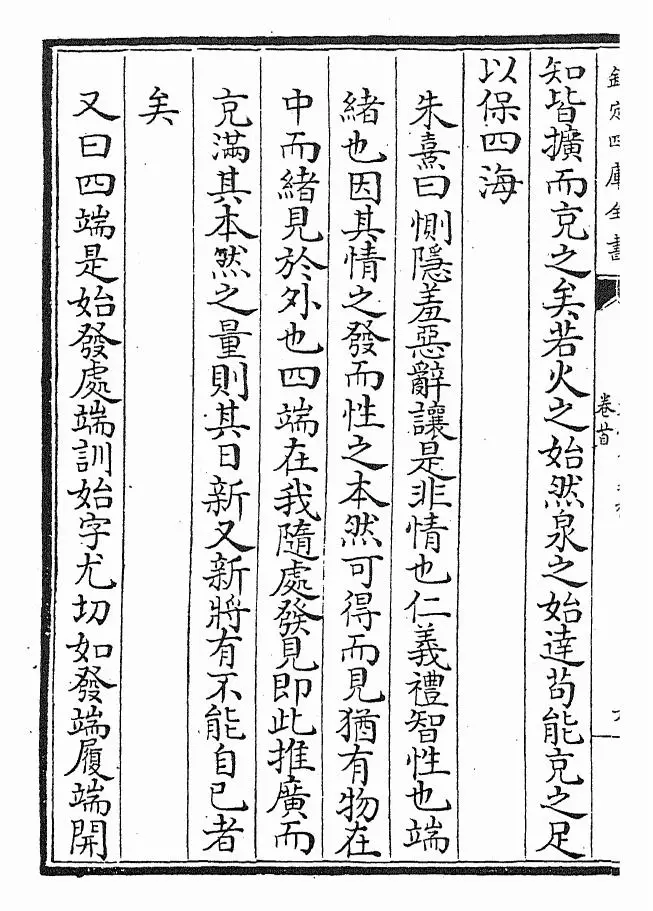 欽定四庫全書
卷首
知皆擴而充之矣若火之始然泉之始達苟能充之足
以保四海
朱熹曰惻隱羞惡辭讓是非情也仁義禮智性也端
緒也因其情之發而性之本然可得而見猶有物在
中而緒見於外也四端在我隨處發見即此推廣而
充滿其本然之量則其日新又新將有不能自已者
矣
又曰四端是始發處端訓始字尤切如發端履端開